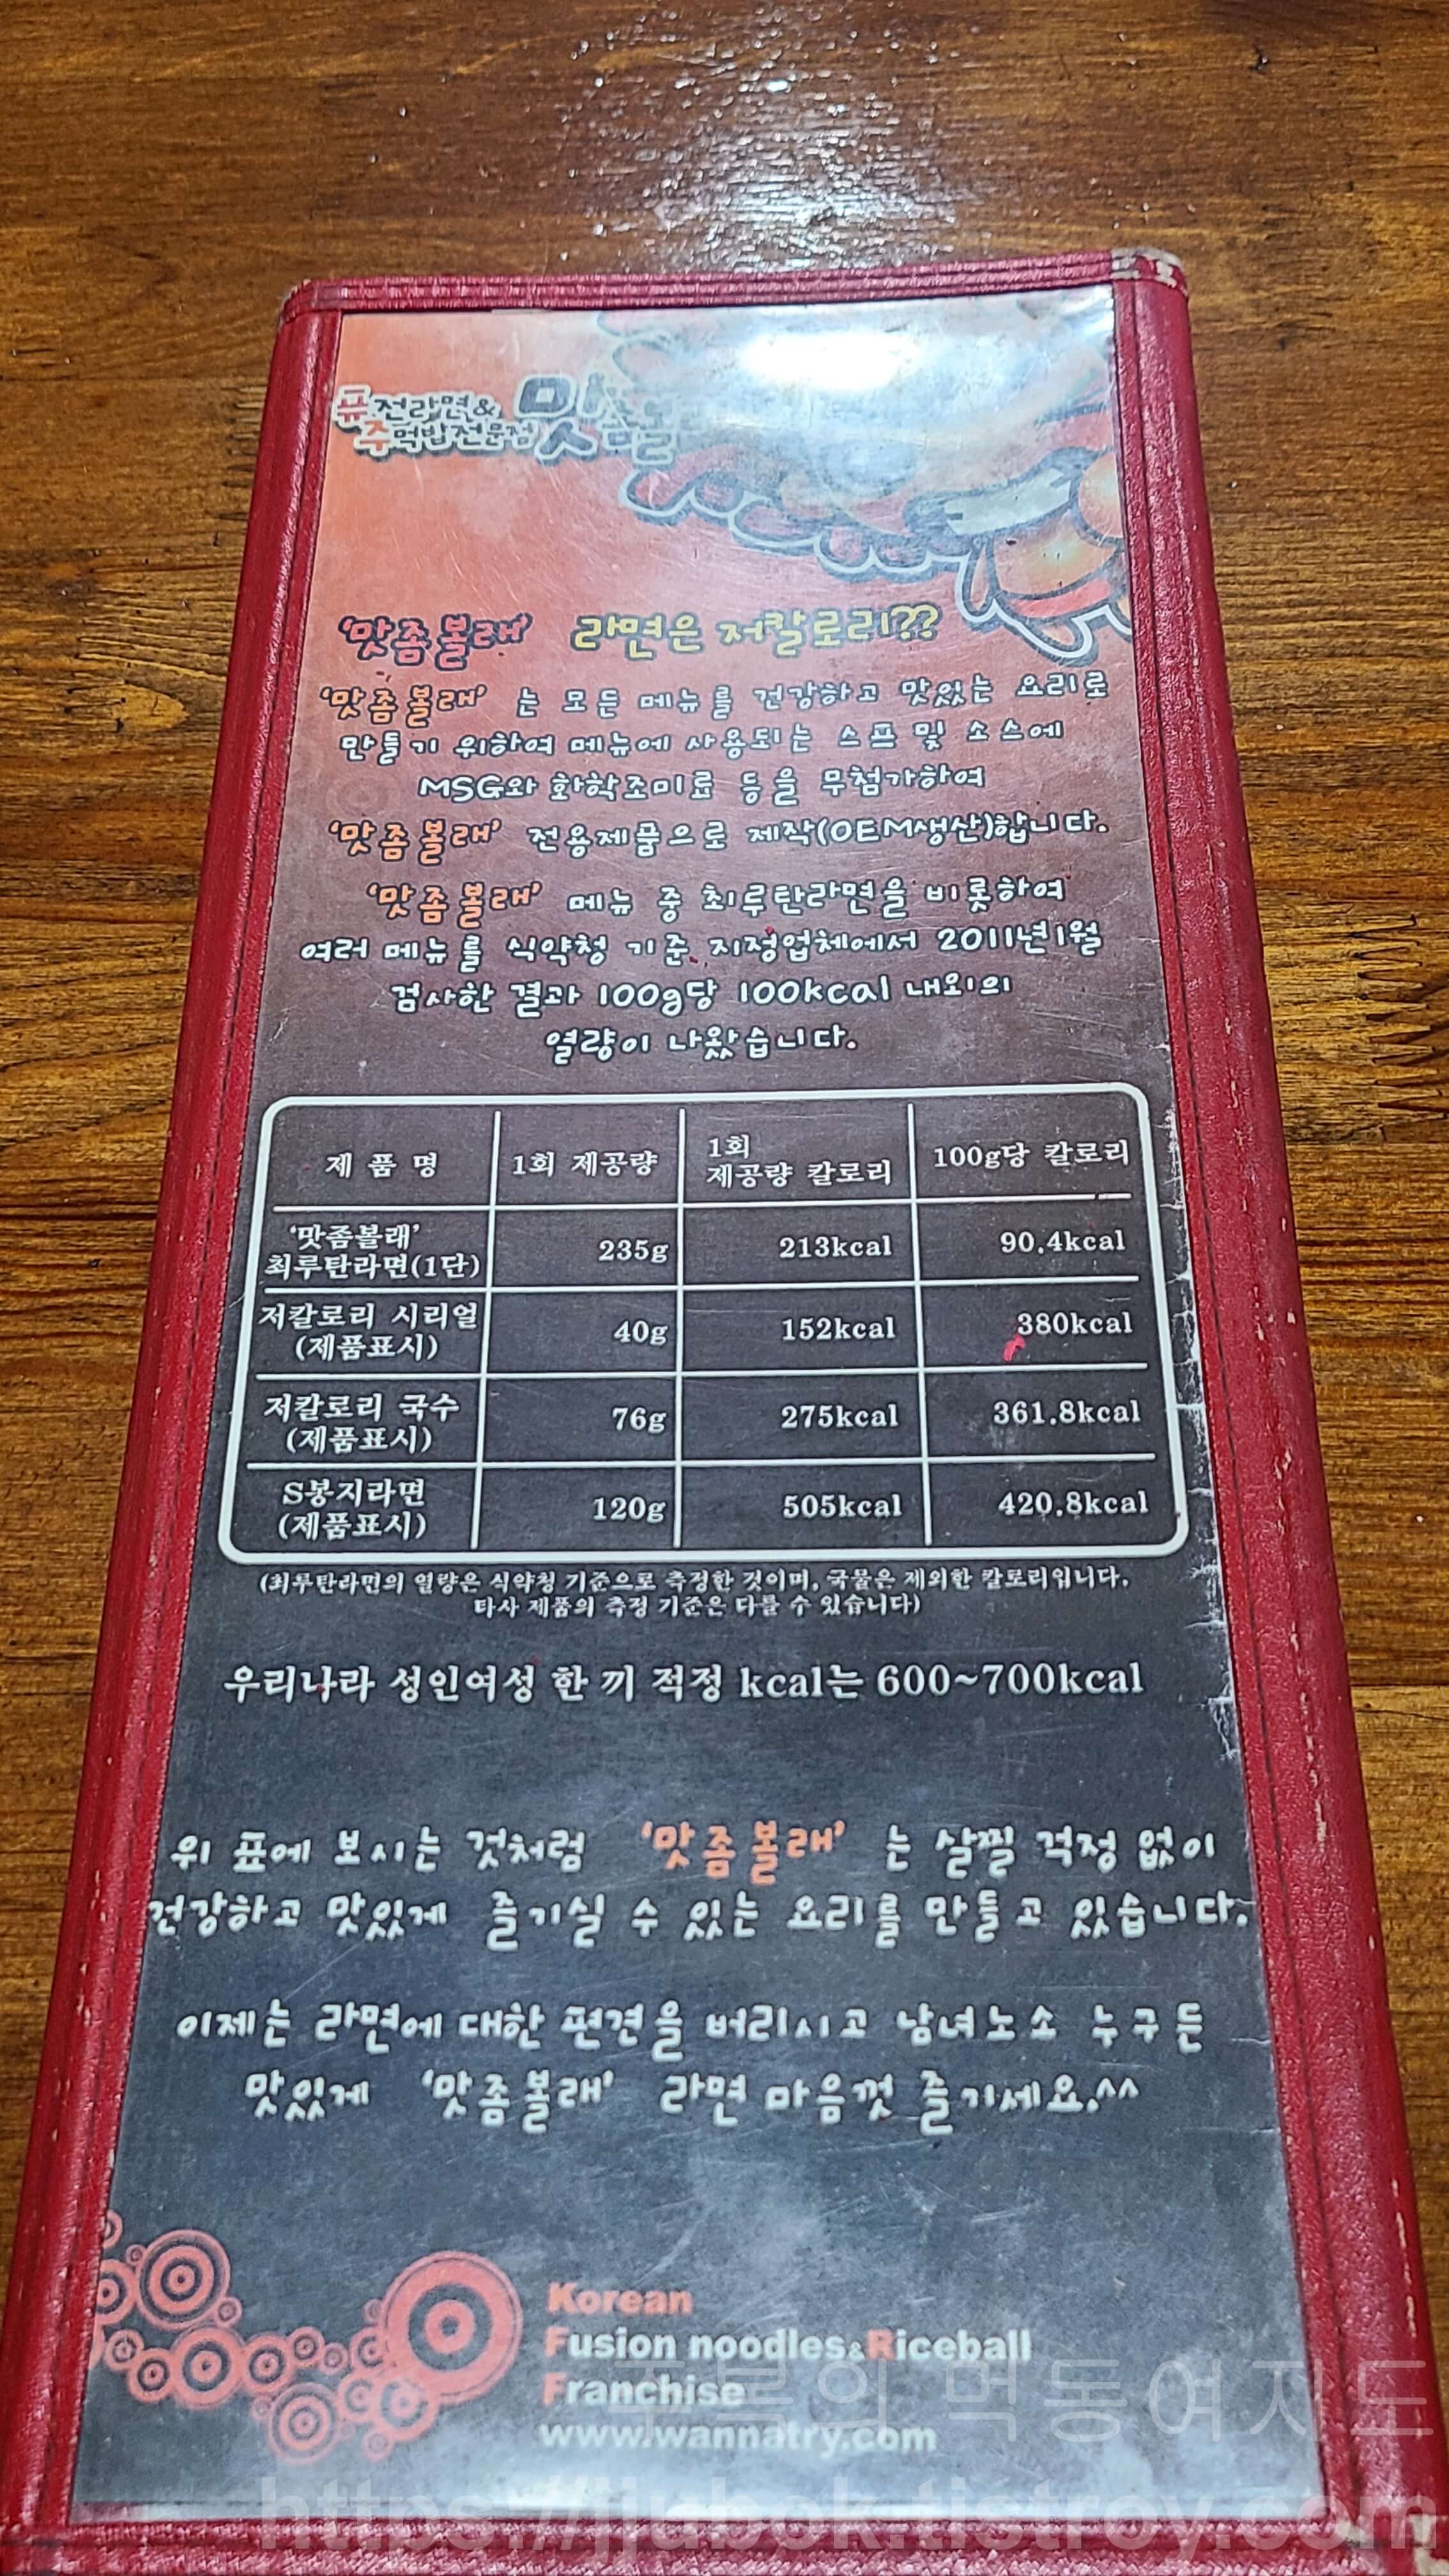 퓨전라면&
주먹밥전문점 맛좀볼
'맛좀볼래' 라면은 저칼로리??
'맛좀볼래' 는 모든 메뉴를 건강하고 맛있는 요리로
만들기 위하여 메뉴에 사용되는 스프 및 소스에
MSG와 화학조미료 등을 무첨가하여
'맛좀볼래' 전용제품으로 제작(OEM생산)합니다.
'맛좀볼래' 메뉴 중 최루탄라면을 비롯하여
여러 메뉴를 식약청 기준 지정업체에서 2011년1월
검사한 결과 100g당 100kcal 내외의
열량이 나왔습니다.
제 품 명 1회 제공량 1회 제공량 칼로리 100g당 칼로리
'맛좀볼래' 최루탄라면(1단) 235g 213kcal 90.4kcal
저칼로리 시리얼 (제품표시) 40g 152kcal 380kcal
저칼로리 국수 (제품표시) 76g 275kcal 361.8kcal
S봉지라면 (제품표시) 120g 505kcal 420.8kcal
(최루탄라면의 열량은 식약청 기준으로 측정한 것이며, 국물은 제외한 칼로리입니다.
타사 제품의 측정 기준은 다를 수 있습니다)
우리나라 성인여성 한 끼 적정 kcal는 600~700kcal
위 표에 보시는 것처럼 '맛좀볼래' 는 살찔 걱정 없이
건강하고 맛있게 즐기실 수 있는 요리를 만들고 있습니다.
이제는 라면에 대한 편견을 버리시고 남녀노소 누구든
맛있게 '맛좀볼래' 라면 마음껏 즐기세요.^^
Korean
Fusion noodles&Riceball
Franchise
www.wannatry.com
주복의 먹동여지도
https://jjubok.tistroy.com